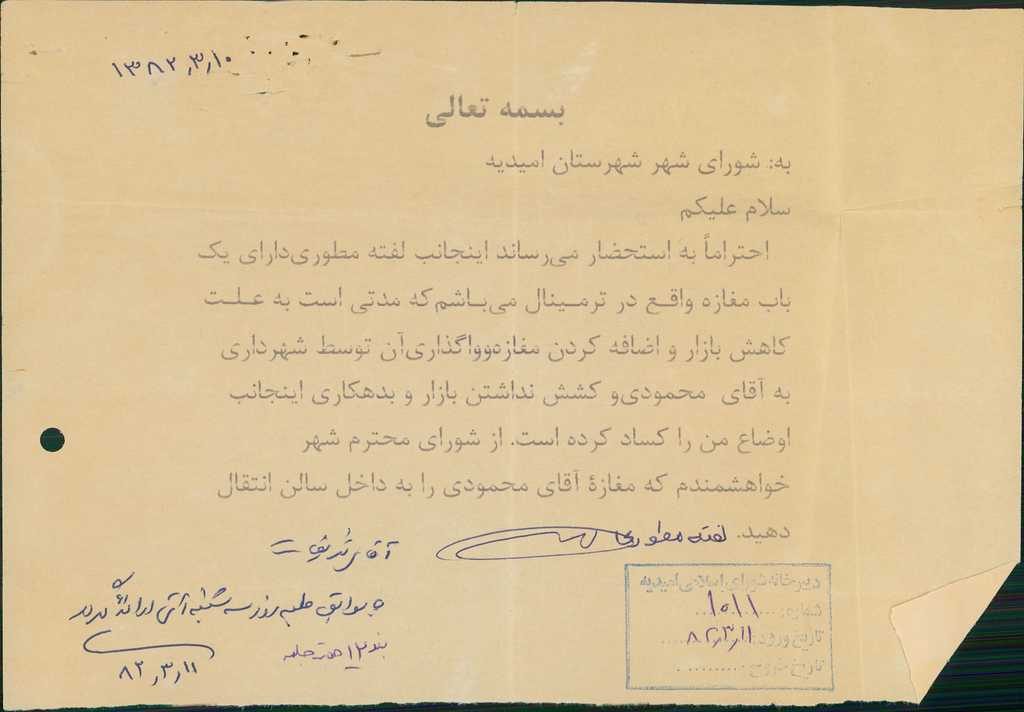 ۱۳۸۲٫۳٫۱۰
بسمه تعالی
به: شورای شهر شهرستان امیدیه
سلام علیکم
احتراماً به استحضار می‌رساند اینجانب لفته مطوری‌دارای یک
باب مغازه واقع در ترمینال می‌باشم‌که مدتی است به علت
کاهش بازار و اضافه کردن مغازه‌وواگذاری‌آن توسط شهرداری
به آقای محمودی‌و کشش نداشتن بازار و بدهکاری اینجانب
اوضاع من را کساد کرده است. از شورای محترم شهر
خواهشمندم که مغازهٔ آقای محمودی را به داخل سالن انتقال
دهید. لفته مطوری
آقای شریفات
جلسه روز سه شنبه آتی ارائه گردد
۸۲٫۳٫۱۱
بند ۱۲ صورتجلسه
دبیرخانه شورای اسلامی امیدیه
شماره: ۱۰۱۱
تاریخ ورود: ۸۲٫۳٫۱۱
تاریخ خروج: ..........